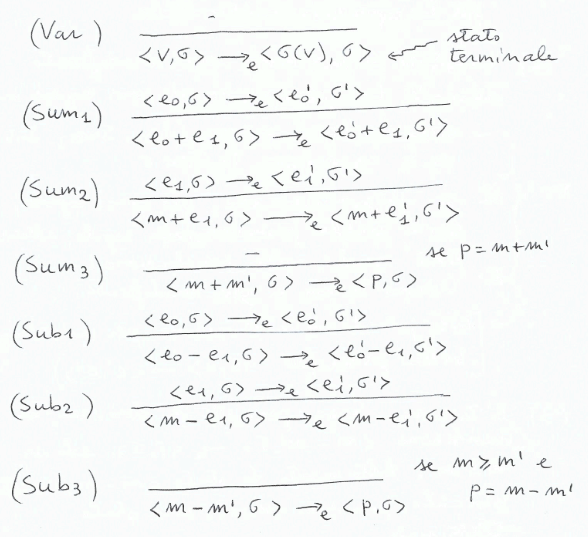 (Var) -
<v,σ> →e <σ(v), σ> ← stato terminale
(Sum1) <e0,σ> →e <e0', σ'>
<e0+e1,σ> →e <e0'+e1,σ'>
(Sum2) <e1,σ> →e <e1',σ'>
<m+e1,σ> →e <m+e1',σ'>
(Sum3) - se p=m+m'
<m+m',σ> →e <p,σ>
(Sub1) <e0,σ> →e <e0',σ'>
<e0-e1,σ> →e <e0'-e1,σ'>
(Sub2) <e1,σ> →e <e1',σ'>
<m-e1,σ> →e <m-e1',σ'>
(Sub3) se m≥m' e
p=m-m'
<m-m',σ> →e <p,σ>